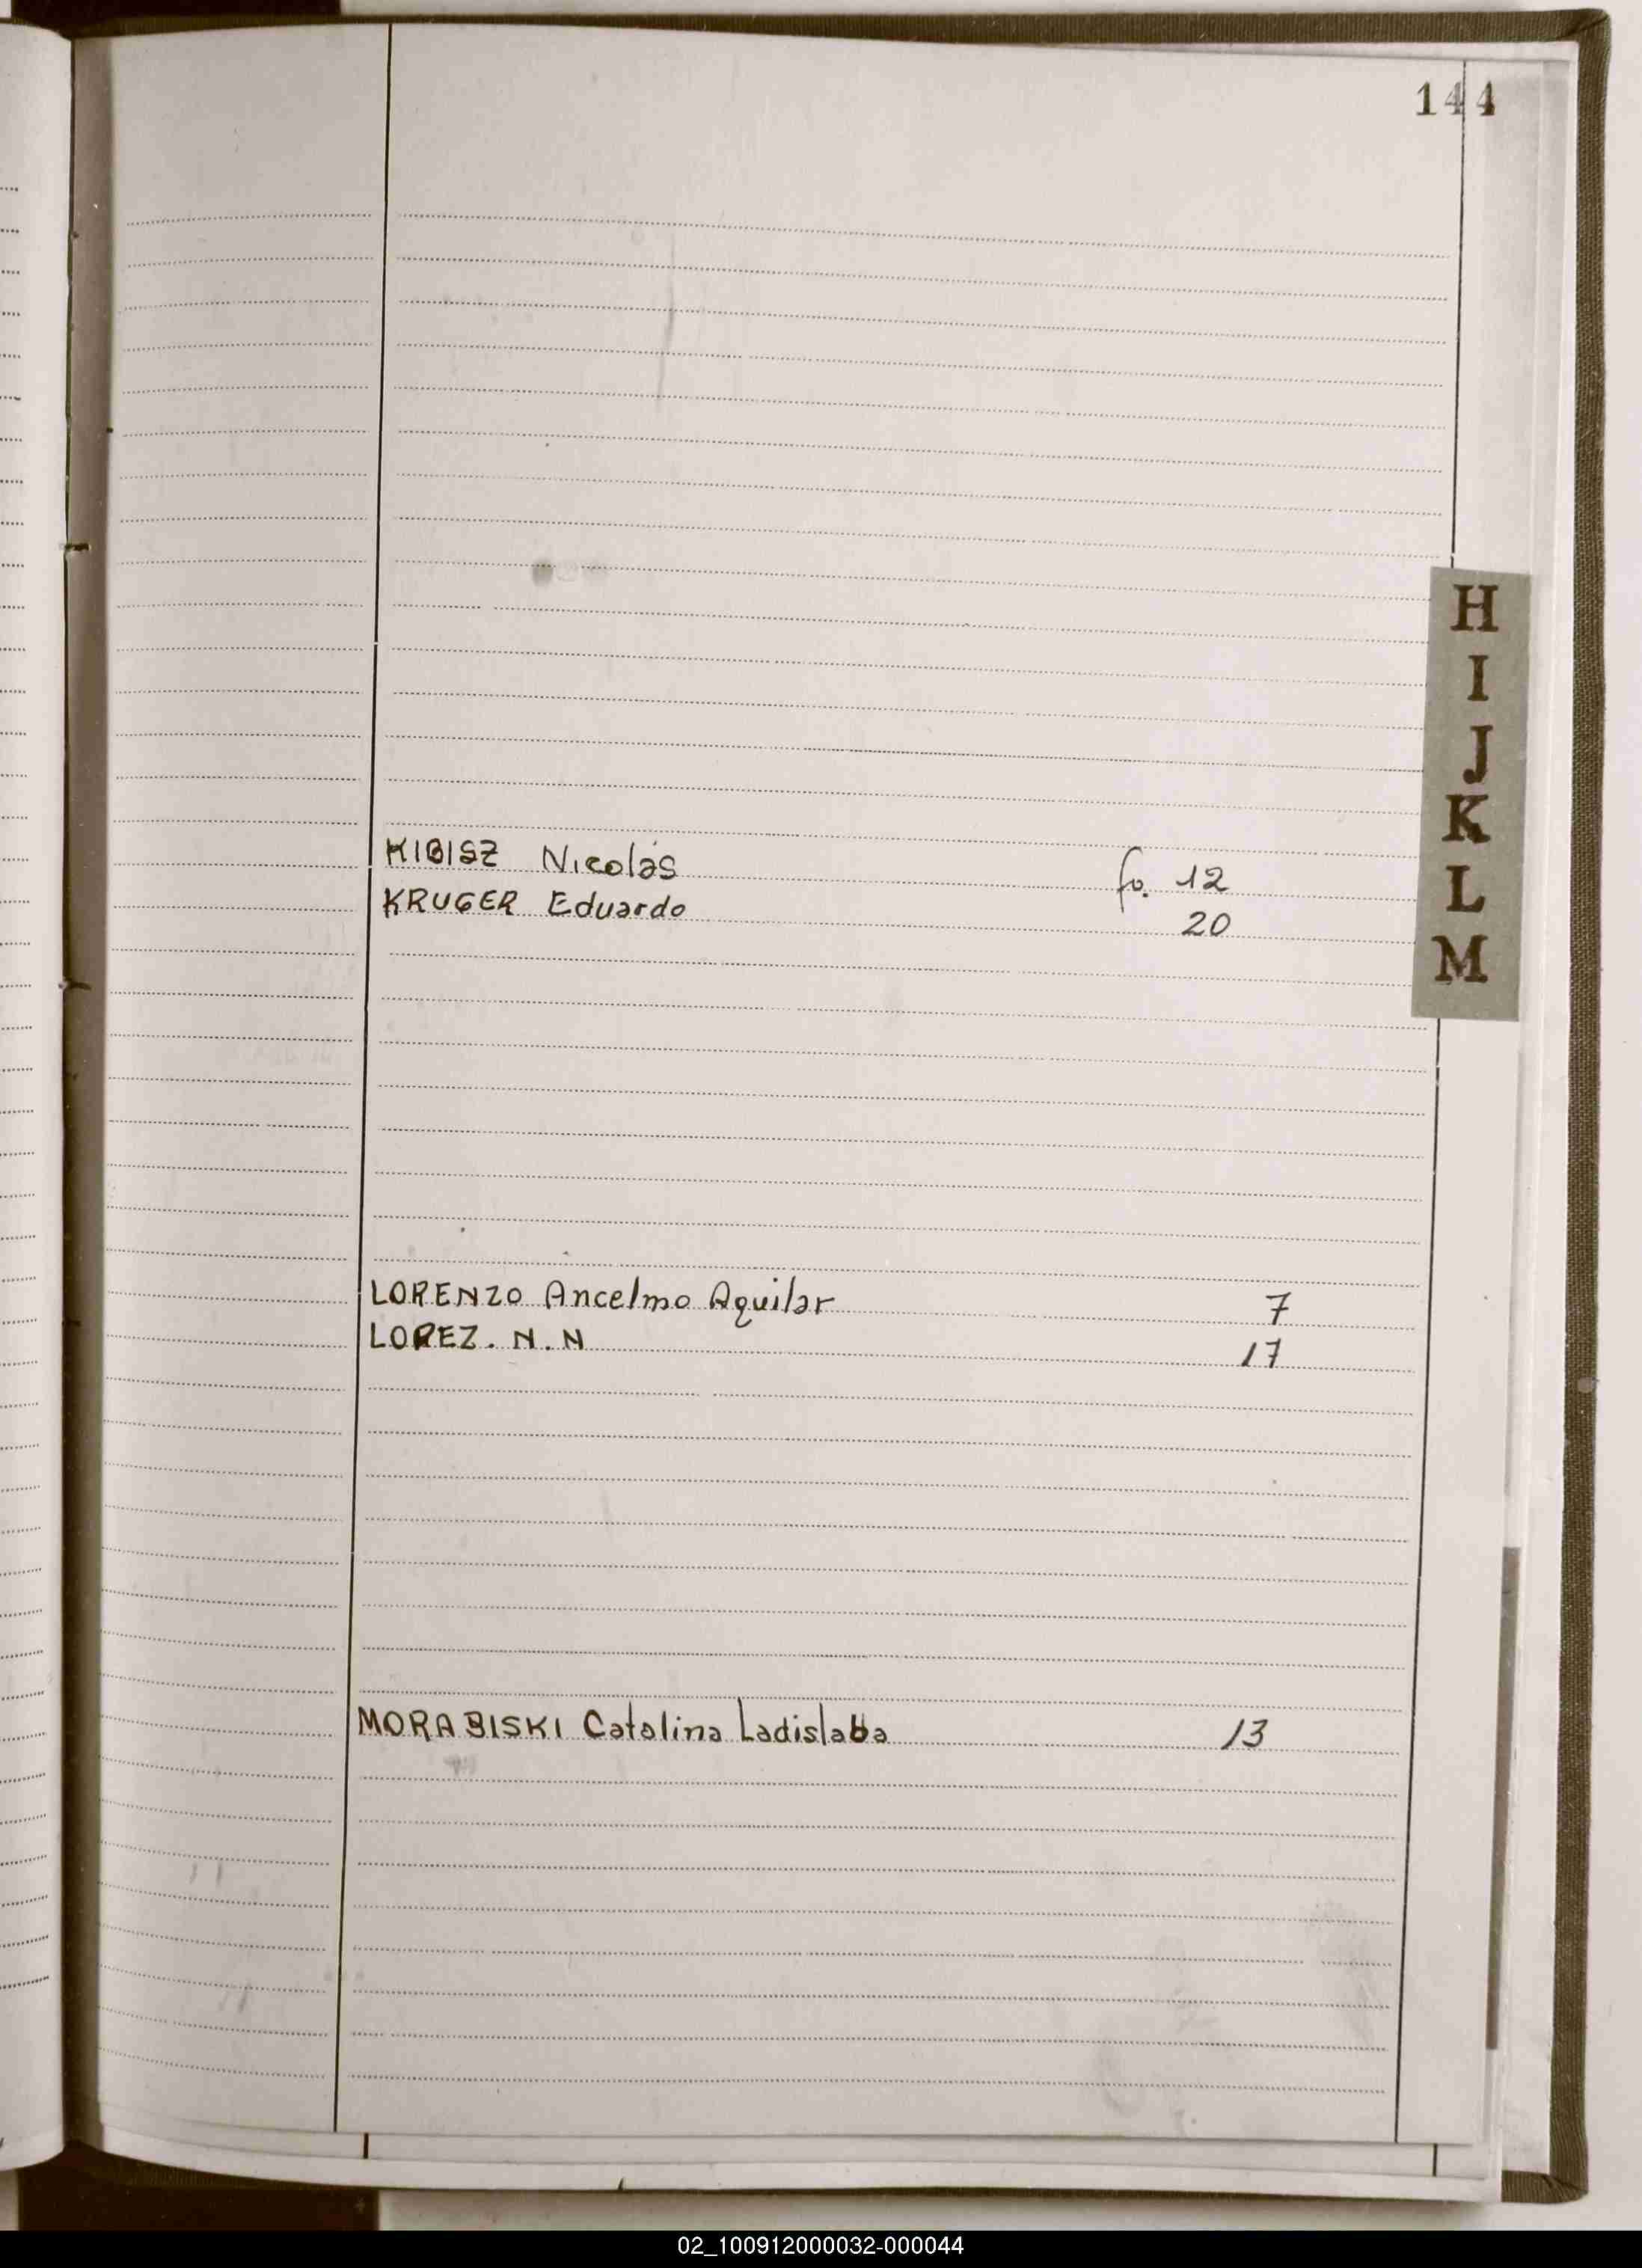 144
H
I
J
K
L
M
KIBISZ Nicolás fo. 12
KRUGER Eduardo 20
LORENZO Ancelmo Aquilar 7
LOPEZ. N. N 17
MORABISKI Catalina Ladislaba 13
02_100912000032-000044